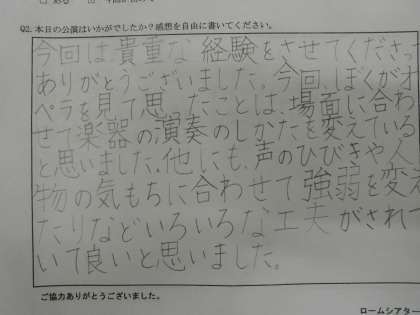 Q2. 本日の公演はいかがでしたか?感想を自由に書いてください。
今回は貴重な経験をさせてくださっ
ありがとうございました。今回ぼくがオ
ペラを見て思ったことは、場面に合わ
せて楽器の演奏のしかたを変えている
と思いました。他にも、声のひびきや人
物の気もちに合わせて強弱を変え
たりなどいろいろな工夫がされて
いて良いと思いました。
ご協力ありがとうございました。
ロームシアター